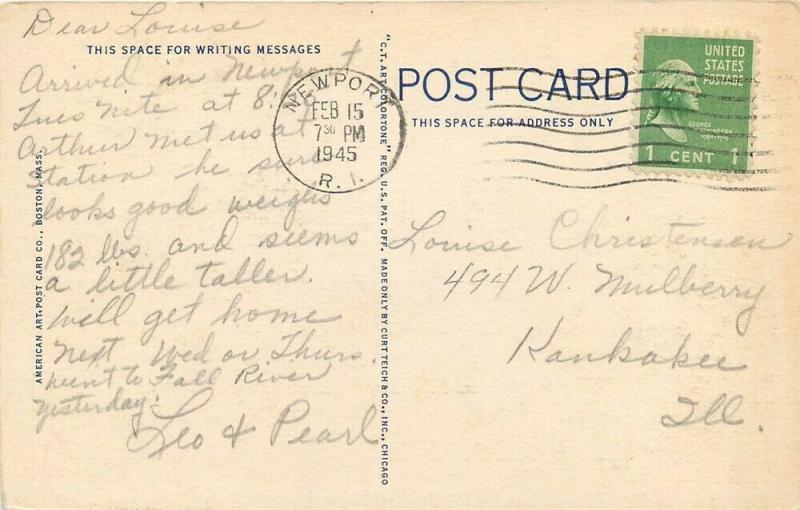 Dear Louise
THIS SPACE FOR WRITING MESSAGES
Arrived in Newport
Tues nite at 8:
Arthur met us at
Station he sure
looks good weighs
182 lbs. and seems
a little taller.
Will get home
next Wed or Thurs.
went to Fall River
yesterday.
Leo & Pearl
AMERICAN ART POST CARD CO., BOSTON, MASS.
"C.T. ART-COLORTONE" REG. U.S. PAT. OFF. MADE ONLY BY CURT TEICH & CO., INC., CHICAGO
NEWPORT
FEB 15
7 30 PM
1945
R. I.
POST CARD
THIS SPACE FOR ADDRESS ONLY
UNITED
STATES
POSTAGE
GEORGE
WASHINGTON
1 CENT 1
Louise Christensen
494 W. Mulberry
Kankakee
Ill.